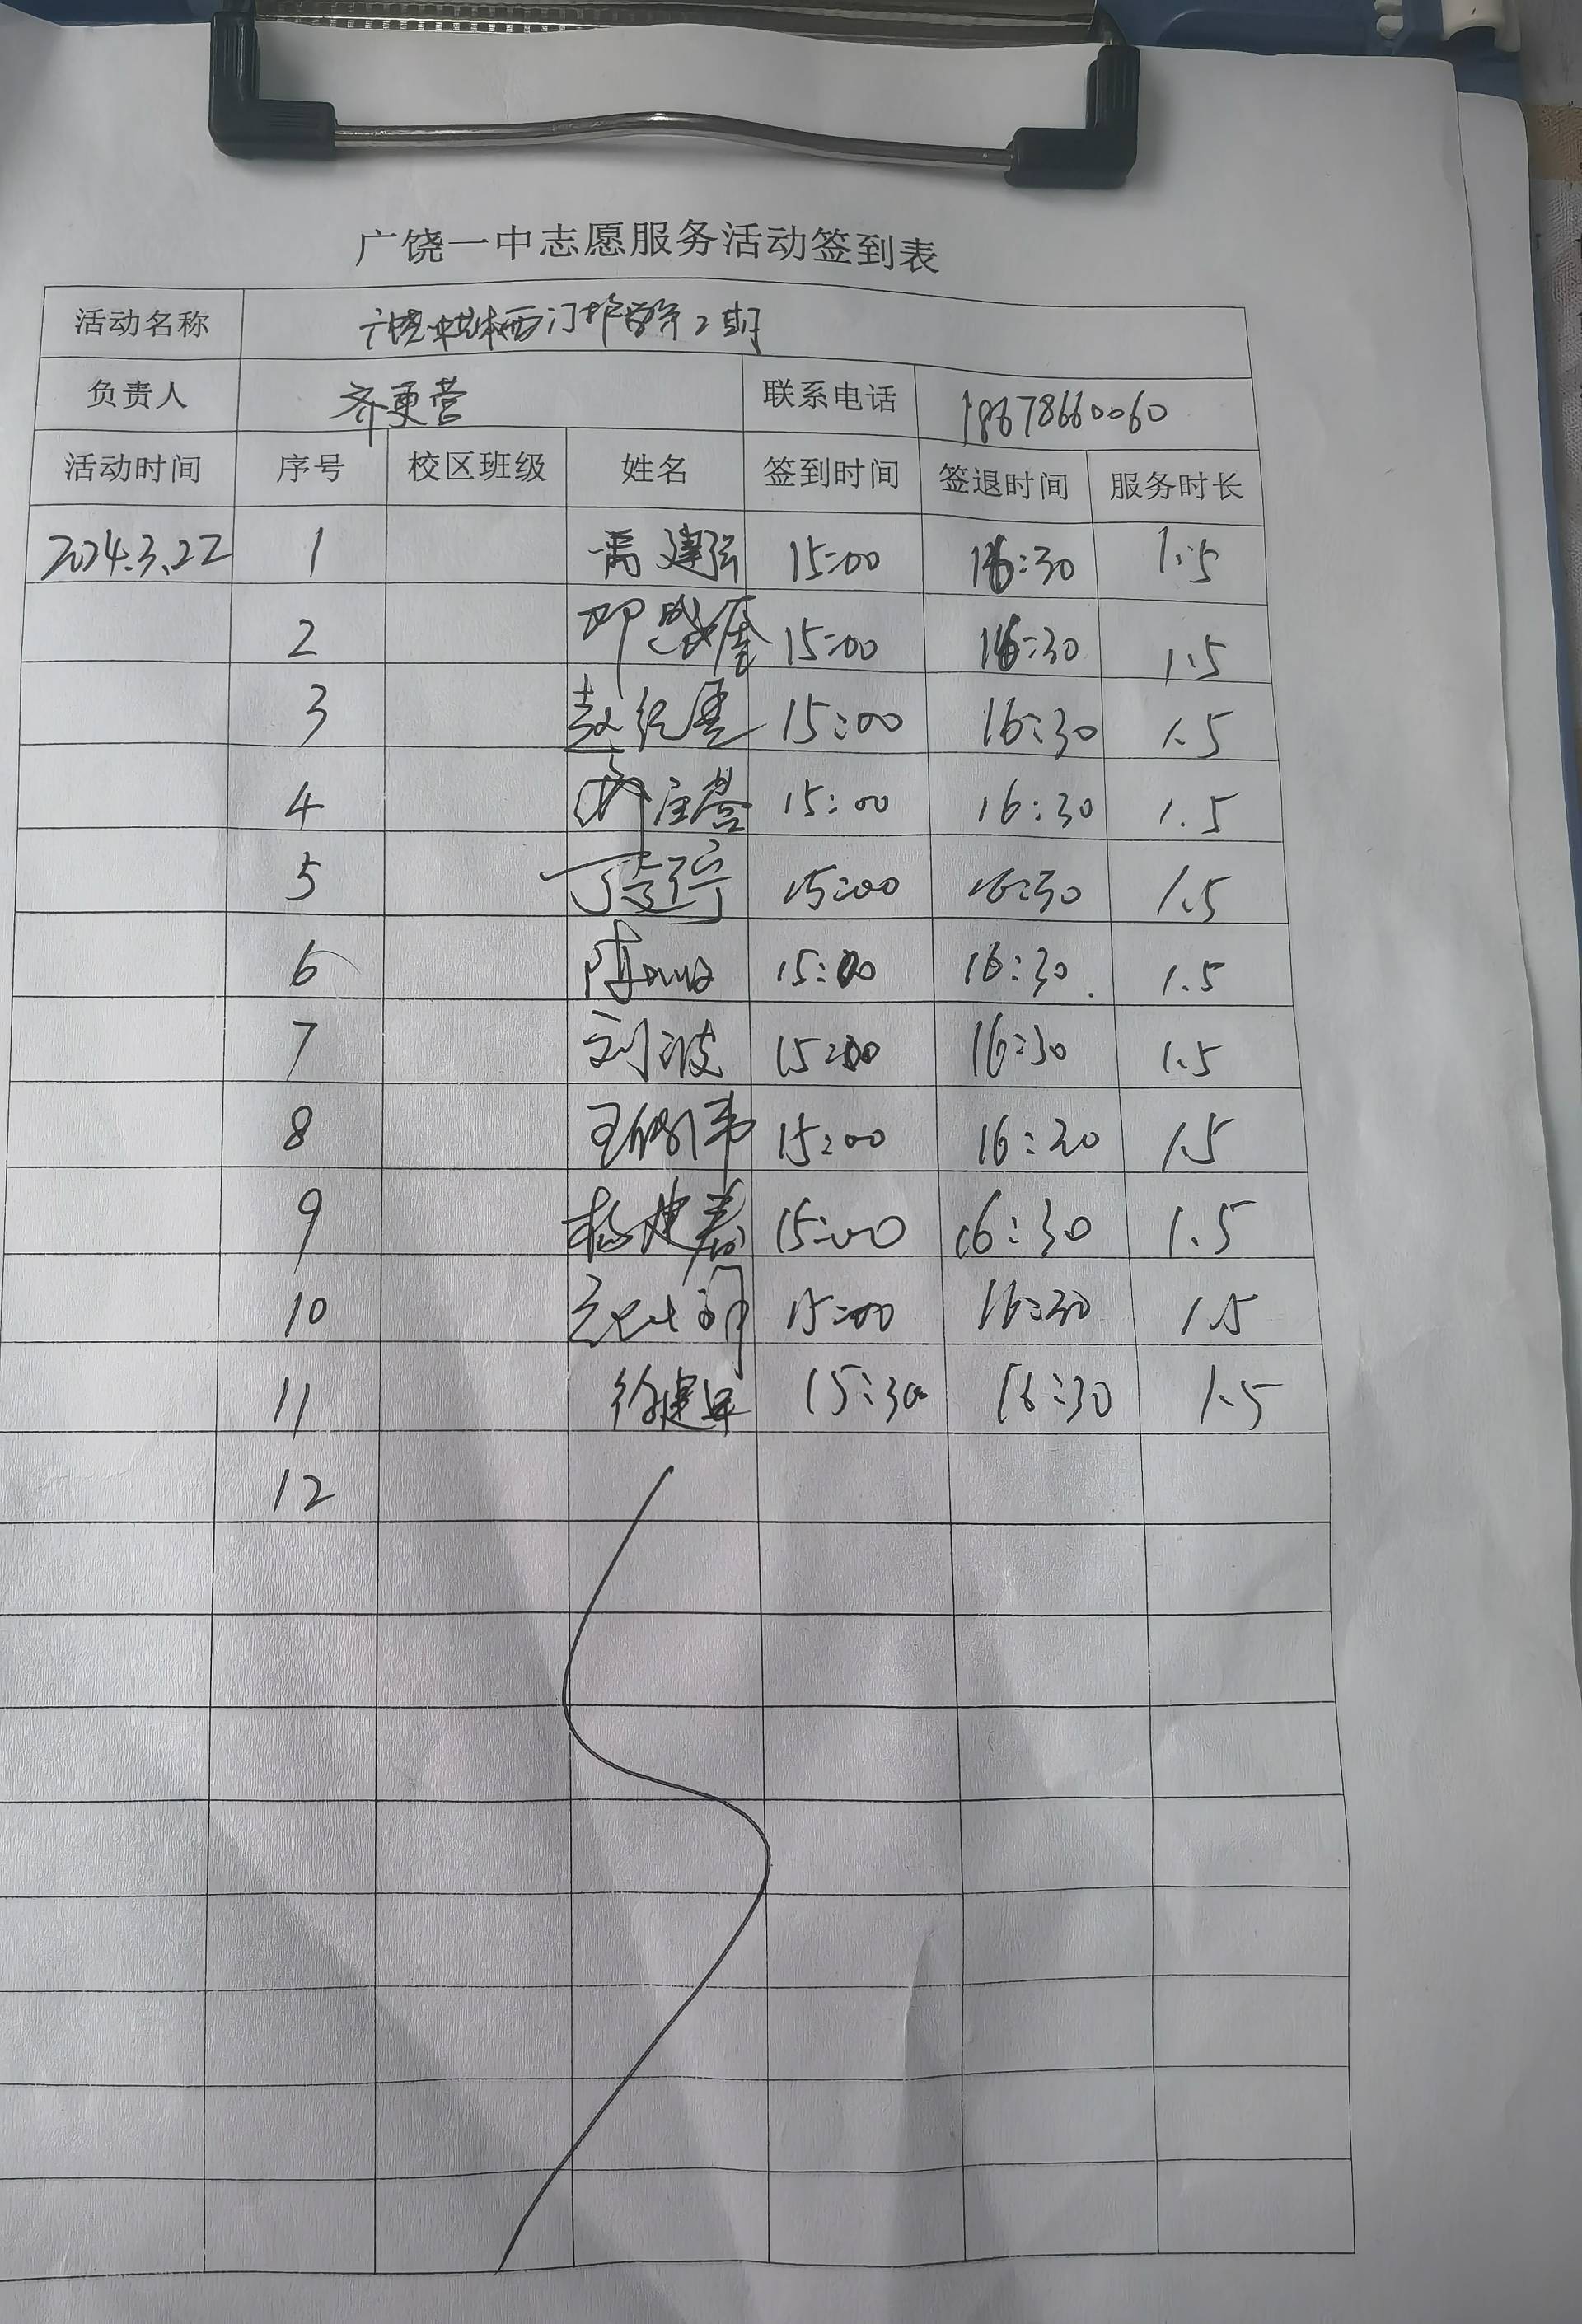 广饶一中志愿服务活动签到表
活动名称 西门护学第2期
负责人 齐更营 联系电话 18678660060
活动时间 序号 校区班级 姓名 签到时间 签退时间 服务时长
2024.3.22 1 15:00 16:30 1.5
2 15:00 16:30 1.5
3 赵 15:00 16:30 1.5
4 15:00 16:30 1.5
5 丁 15:00 16:30 1.5
6 陈 15:00 16:30 1.5
7 刘波 15:00 16:30 1.5
8 王 15:00 16:30 1.5
9 杨建春 15:00 16:30 1.5
10 15:00 16:30 1.5
11 徐建 15:30 16:30 1.5
12